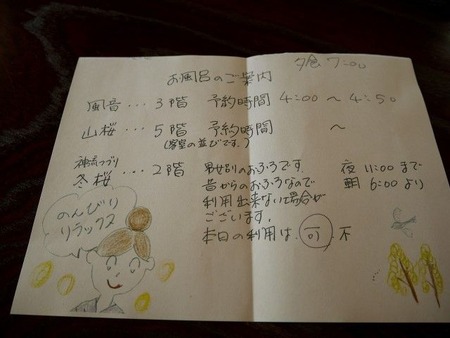 夕食 7:00
お風呂のご案内
風音…3階 予約時間 4:00 ～ 4:50
山桜…5階 予約時間 ～
(客室の並びです。)
冬桜…2階 男女別のおふろです。 夜 11:00 まで
昔からのおふろなので 朝 6:00 より
利用出来ない場合が
ございます。
本日の利用は 可 不
のんびり
リラックス